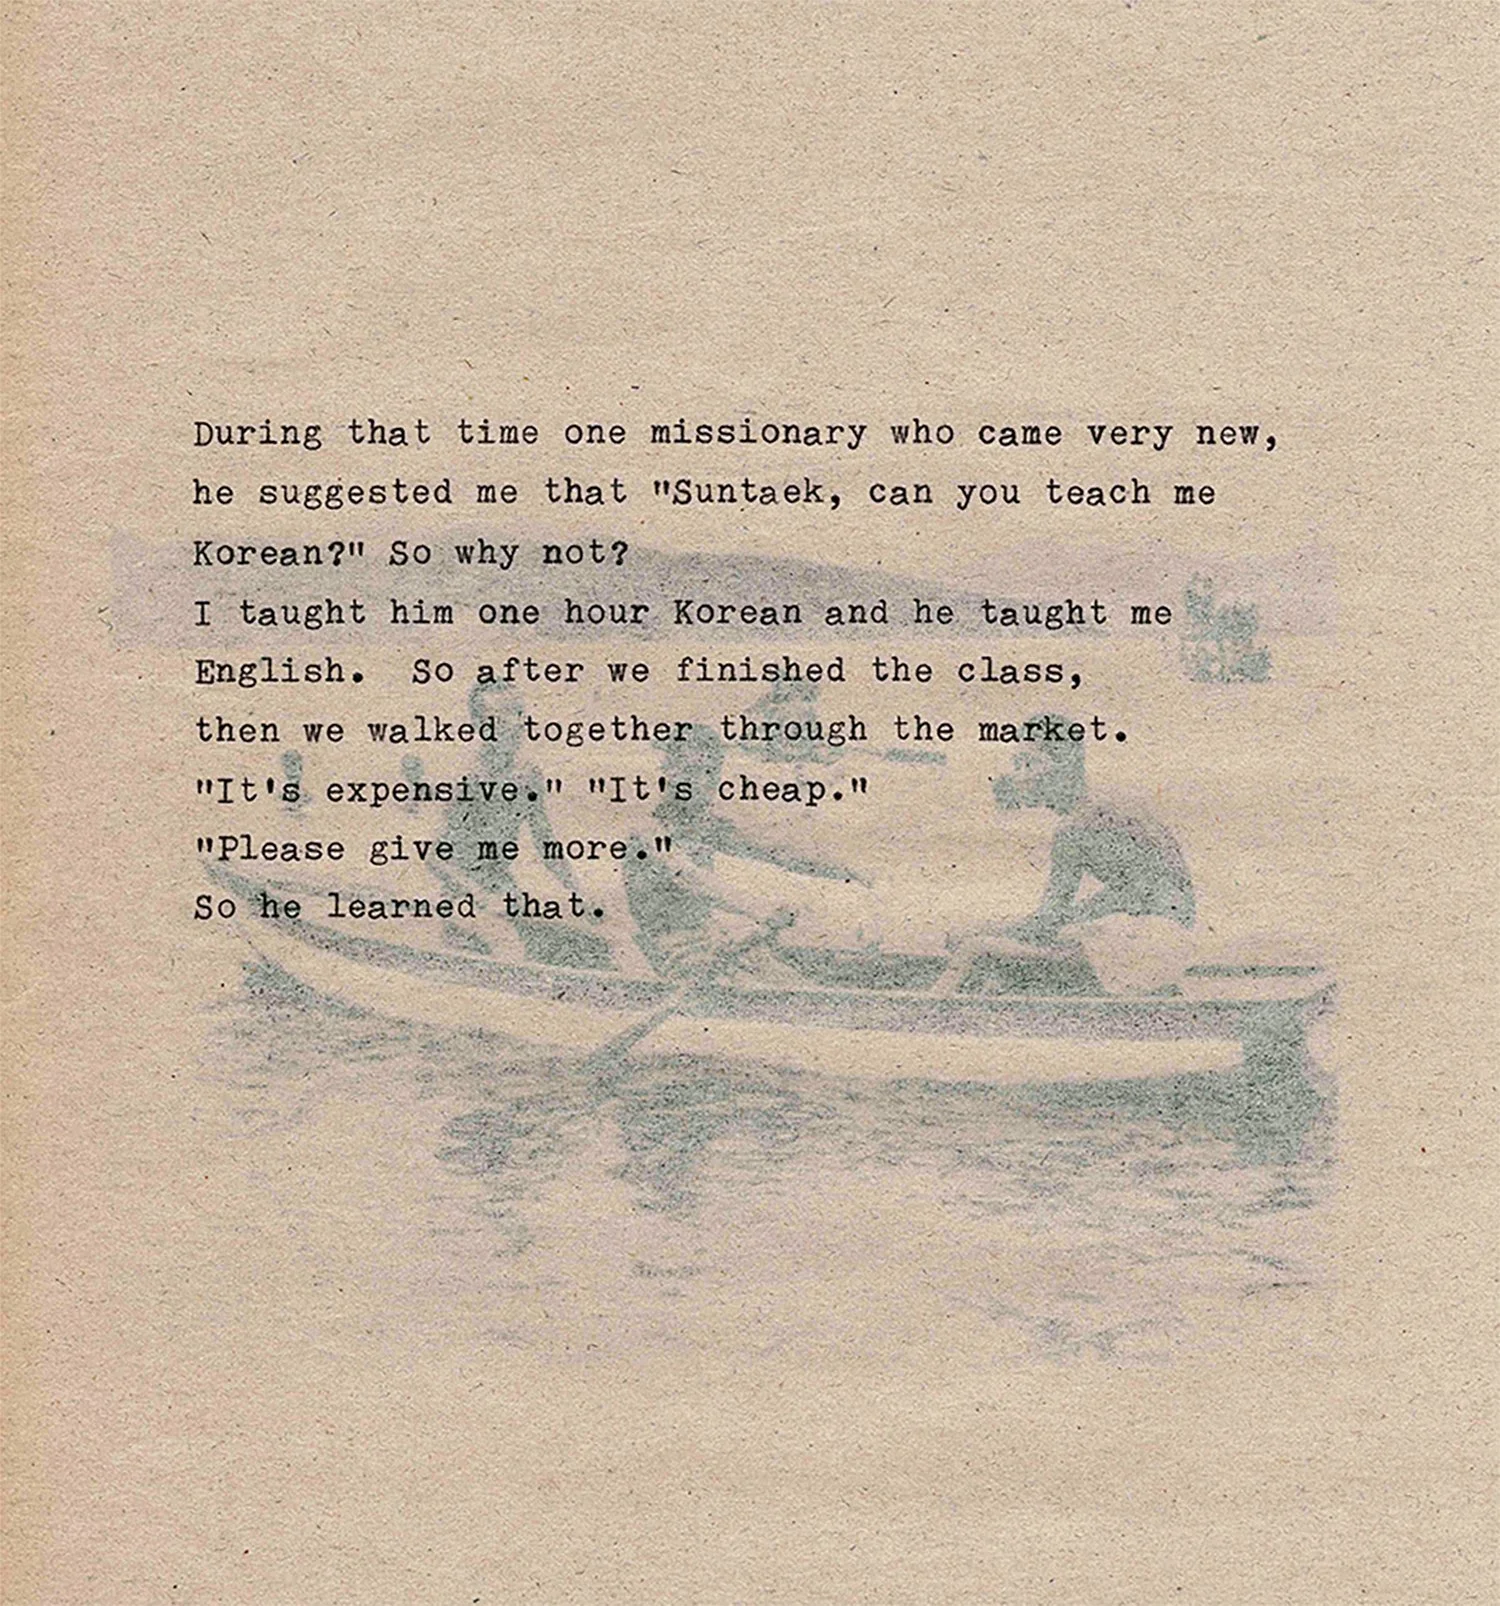 During that time one missionary who came very new,
he suggested me that "Suntaek, can you teach me
Korean?" So why not?
I taught him one hour Korean and he taught me
English.  So after we finished the class,
then we walked together through the market.
"It's expensive." "It's cheap."
"Please give me more."
So he learned that.